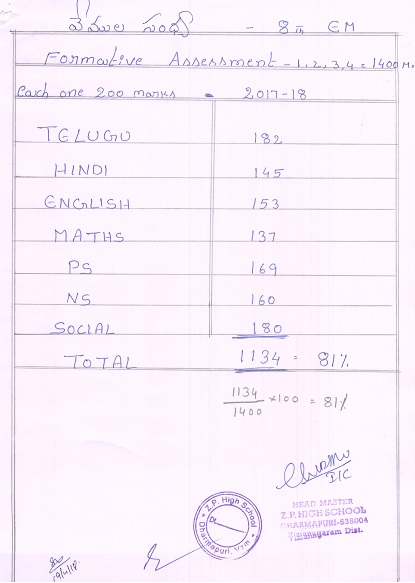 వేముల సంధ్య - 8th EM
Formative Assessment - 1, 2, 3, 4 = 1400 M.
Each one 200 marks = 2017-18
TELUGU 182
HINDI 145
ENGLISH 153
MATHS 137
PS 169
NS 160
SOCIAL 180
TOTAL 1134 = 81%
1134/1400 ×100 = 81%
I/C
HEAD MASTER
Z.P. HIGH SCHOOL
DHARMAPURI-535004
Vizianagaram Dist.
Z.P. High School
Dt.
Dharmapuri, Vzm